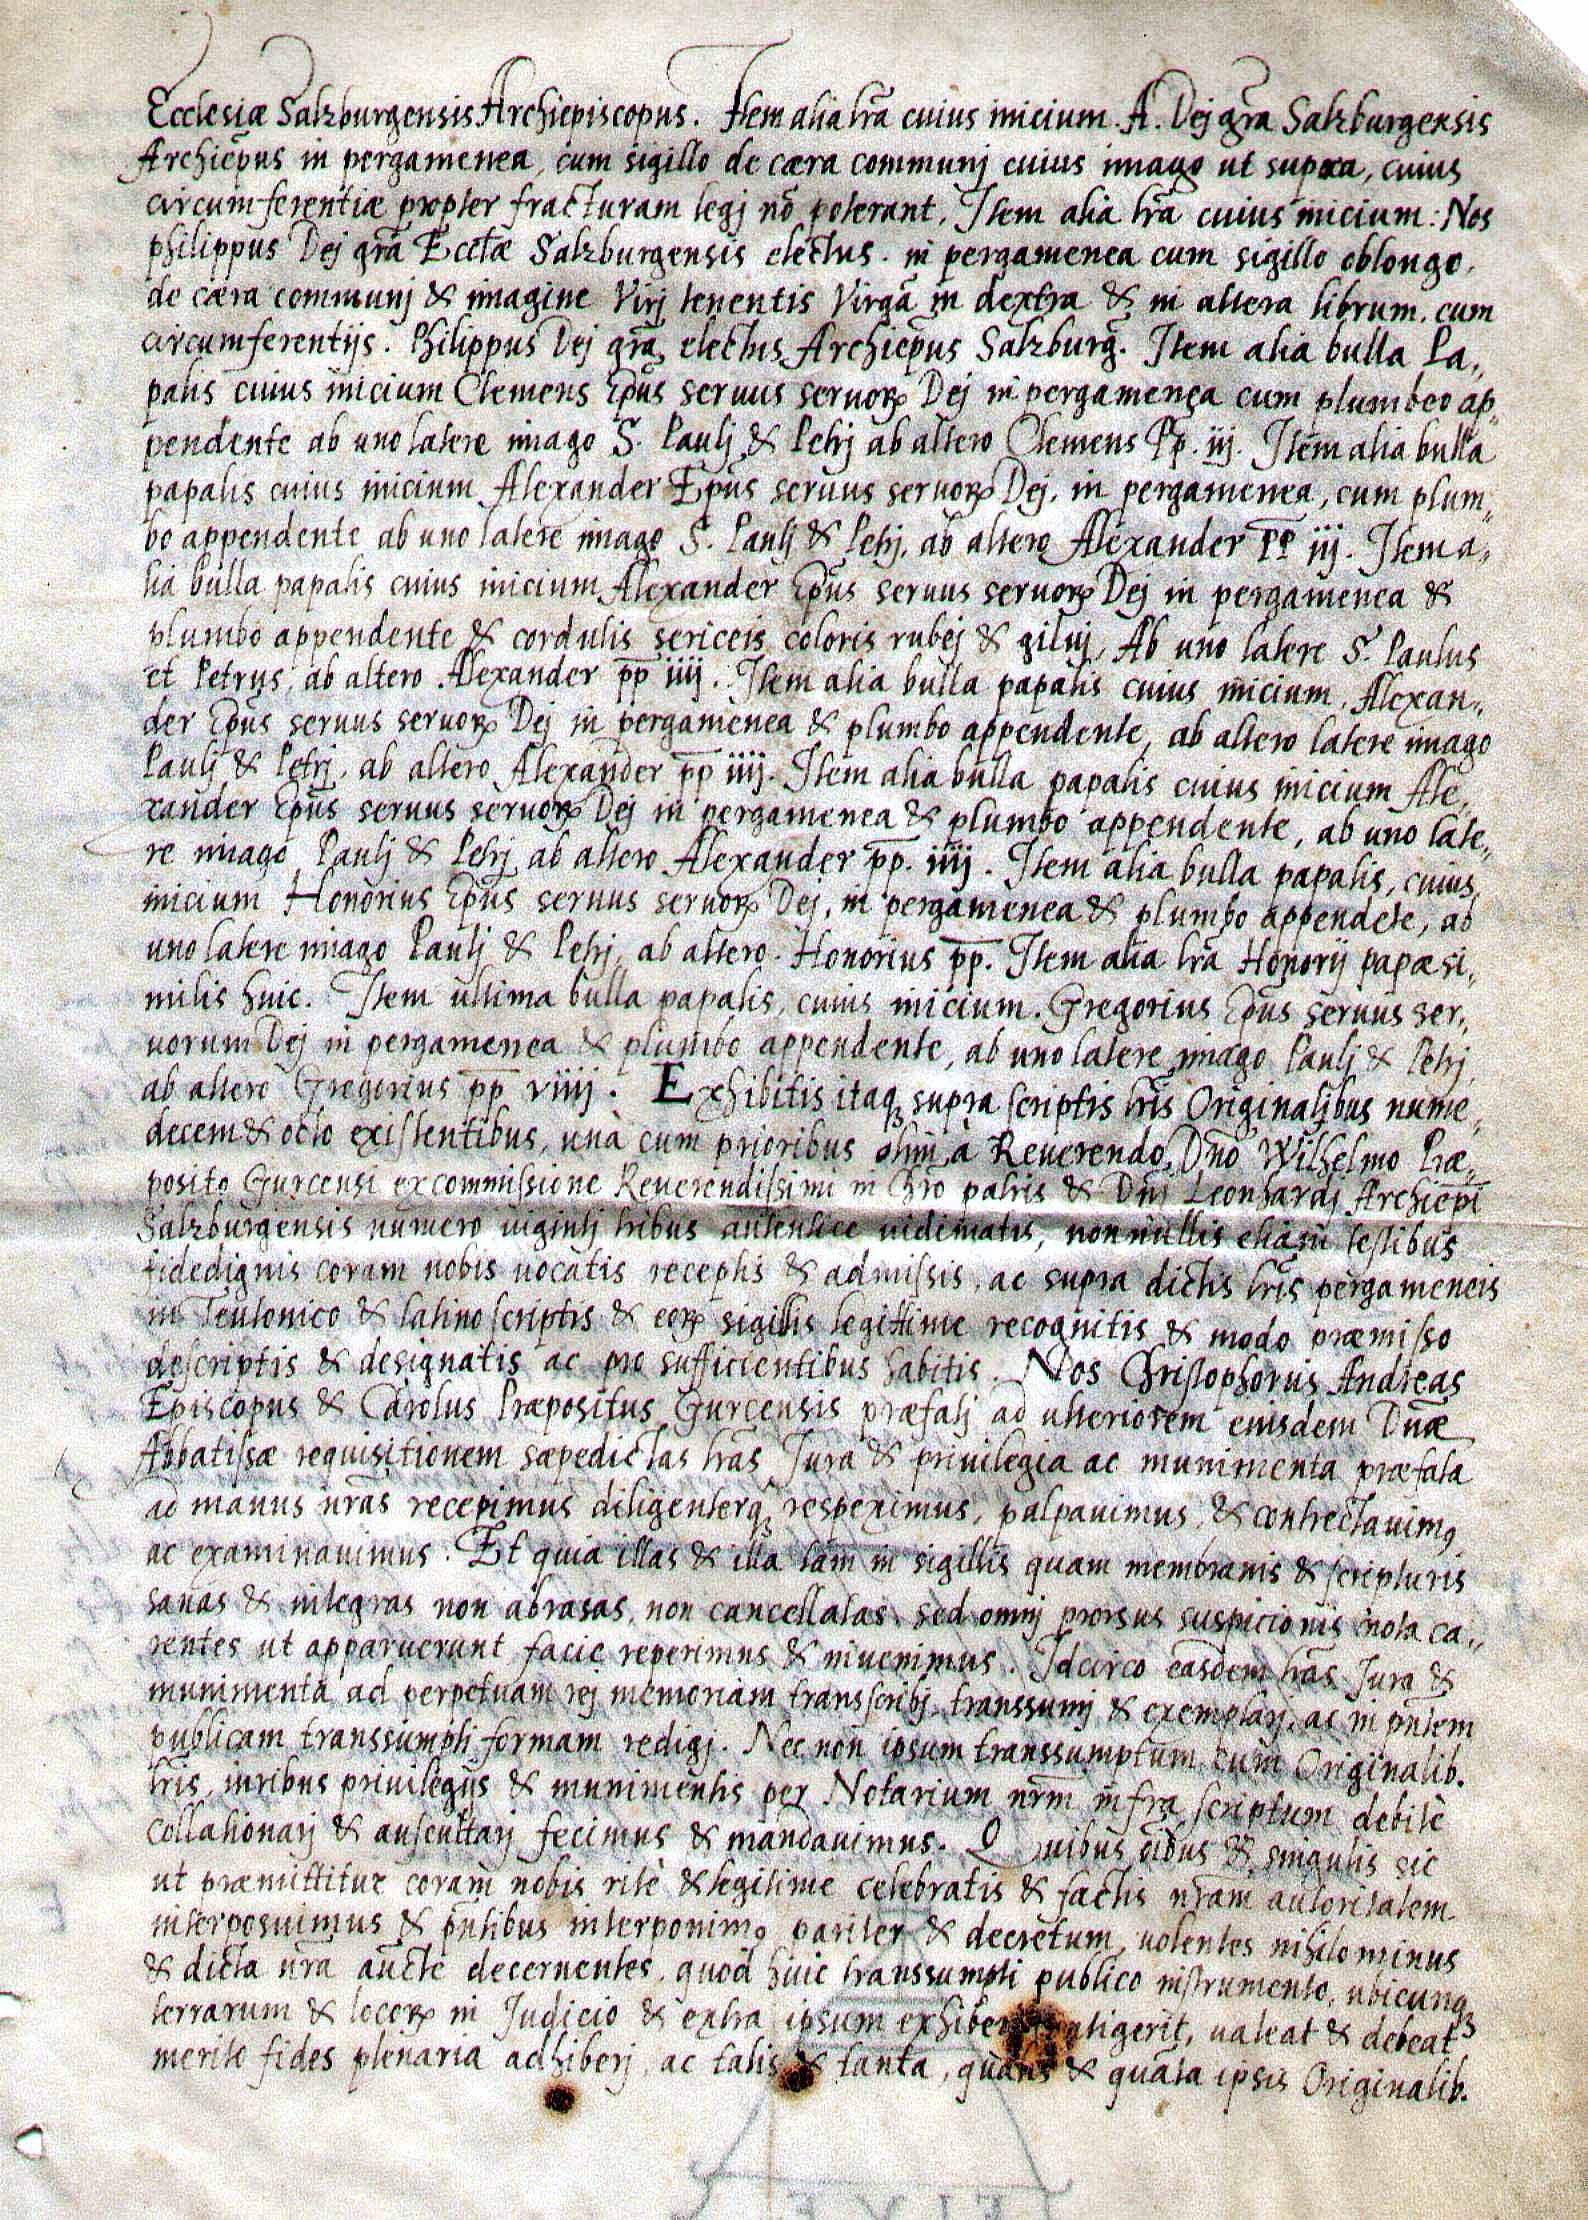 Ecclesiæ Salzburgensis Archiepiscopus. Item alia lr̃a cuius inicium. A. Dej gr̃a Salzburgensis
Archiep̃us in pergamenea, cum sigillo de cæra communj cuius imago ut supra, cuius
circumferentiæ propter fracturam legj nõ poterant. Item alia lr̃a cuius inicium: Nos
philippus Dej gr̃a Eccl̃æ Salzburgensis electus. in pergamenea cum sigillo oblongo,
de cæra communj & imagine Virj tenentis Virgã in dextra & in altera librum. cum
circumferentijs. Philippus Dej gr̃a electus Archiep̃us Salzburg̃. Item alia bulla Pa„
palis cuius inicium Clemens Ep̃us seruus seruorꝝ Dej in pergamenea cum plumbeo ap„
pendente ab uno latere imago S. Paulj & Petrj ab altero Clemens Pp. iij. Item alia bulla
papalis cuius inicium Alexander Ep̃us seruus seruorꝝ Dej. in pergamenea, cum plum„
bo appendente ab uno latere imago S. Paulj & Petrj. ab altero Alexander PP iij. Item a„
lia bulla papalis cuius inicium Alexander Ep̃us seruus seruorꝝ Dej in pergamenea &
plumbo appendente & cordulis sericeis coloris rubej & giluj, Ab uno latere S. Paulus
et Petrus, ab altero Alexander pp iiij. Item alia bulla papalis cuius inicium, Alexan„
der Ep̃us seruus seruorꝝ Dej in pergamenea & plumbo appendente, ab altero latere imago
Paulj & Petrj. ab altero Alexander pp iiij. Item alia bulla papalis cuius inicium Ale„
xander Ep̃us seruus seruorꝝ Dej in pergamenea & plumbo appendente, ab uno late„
re imago Paulj & Petrj ab altero Alexander pp. iiij. Item alia bulla papalis, cuius
inicium Honorius Ep̃us seruus seruorꝝ Dej, in pergamenea & plumbo appendẽte, ab
uno latere imago Paulj & Petrj, ab altero. Honorius pp. Item alia lr̃a Honorij papæ si„
milis huic. Item ultima bulla papalis, cuius inicium. Gregorius Ep̃us seruus ser„
uorum Dej in pergamenea & plumbo appendente, ab uno latere imago Paulj & Petrj
ab altero Gregorius pp viiij. Exhibitis itaqꝫ supra scriptis lr̃is Originalibus nume„
decem & octo existentibus, unà cum prioribus olim à Reuerendo Dño Wilhelmo Præ„
posito Gurcensi ex commissione Reuerendissimi in Chr̃o patris & Dñi Leonhardj Archiep̃i
Salzburgensis numero uigintj tribus autentice uidimatis, nonnullis etiam testibus
fidedignis coram nobis uocatis receptis & admissis, ac supra dictis lr̃is pergameneis
in Teutonico & latino scriptis & eorꝝ sigillis legittime recognitis & modo præmisso
descriptis & designatis ac pro sufficientibus habitis. Nos Christophorus Andreas
Episcopus & Carolus Præpositus Gurcensis præfatj ad ulteriorem eiusdem Dñæ
Abbatissæ requisitionem sæpedictas lr̃as Jura & priuilegia ac munimenta præfata
ad manus nr̃as recepimus diligenterqꝫ respeximus, palpauimus, & contrectauimꝰ
ac examinauimus. Et quia illas & illa tam in sigillis quam membranis & scripturis
sanas & integras non abrasas, non cancellatas, sed omnj prorsus suspicionis nota ca„
rentes ut apparuerunt facie reperimus & inuenimus. Idcirco easdem lr̃as Jura &
munimenta ad perpetuam rej memoriam transscribj, transsumj & exemplarj, ac in pñtem
publicam transsumpti formam redigj. Nec non ipsum transsumptum cum Originalib.
lr̃is, iuribus priuilegijs & munimentis per Notarium nr̃m infra scriptum debitè
collationarj & auscultarj fecimus & mandauimus. Quibus oĩbus & singulis sic
ut præmittitur coram nobis ritè & legitime celebratis & factis nr̃am autoritatem
interposuimus & pñtibus interponimꝰ pariter & decretum, uolentes nihilominus
& dicta nr̃a aucte decernentes, quod huic transsumpti publico instrumento, ubicunqꝫ
terrarum & locorꝝ in Judicio & extra ipsum exhiberi contigerit, ualeat & debeat
merito fides plenaria adhiberj, ac talis & tanta, qualis & quãta ipsis Originalib.